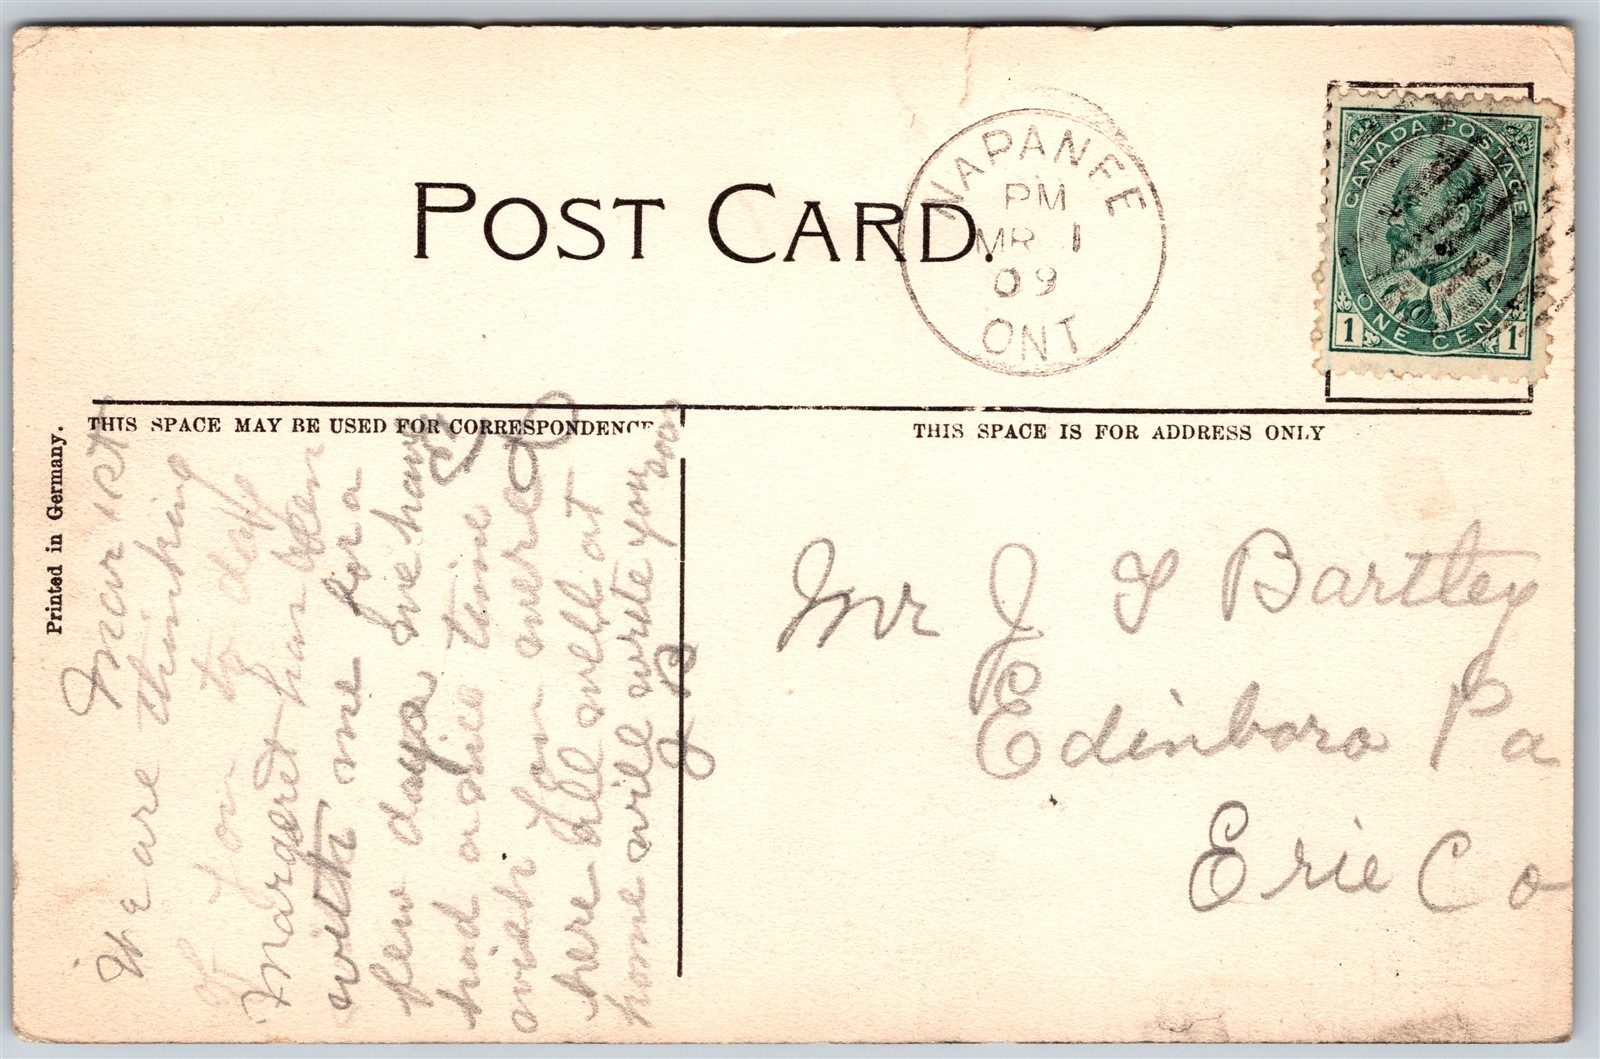 POST CARD.
NAPANEE
PM
MR 1
09
ONT
CANADA POSTAGE
1 ONE CENT 1
THIS SPACE MAY BE USED FOR CORRESPONDENCE.
THIS SPACE IS FOR ADDRESS ONLY
Printed in Germany.
Mar 1st
We are thinking
of you to day
Margeret has been
with me for a
few days we have
had a nice time
wish you were
here All well at
home will write you soon
J B
Mr J Bartley
Edinboro Pa
Erie Co